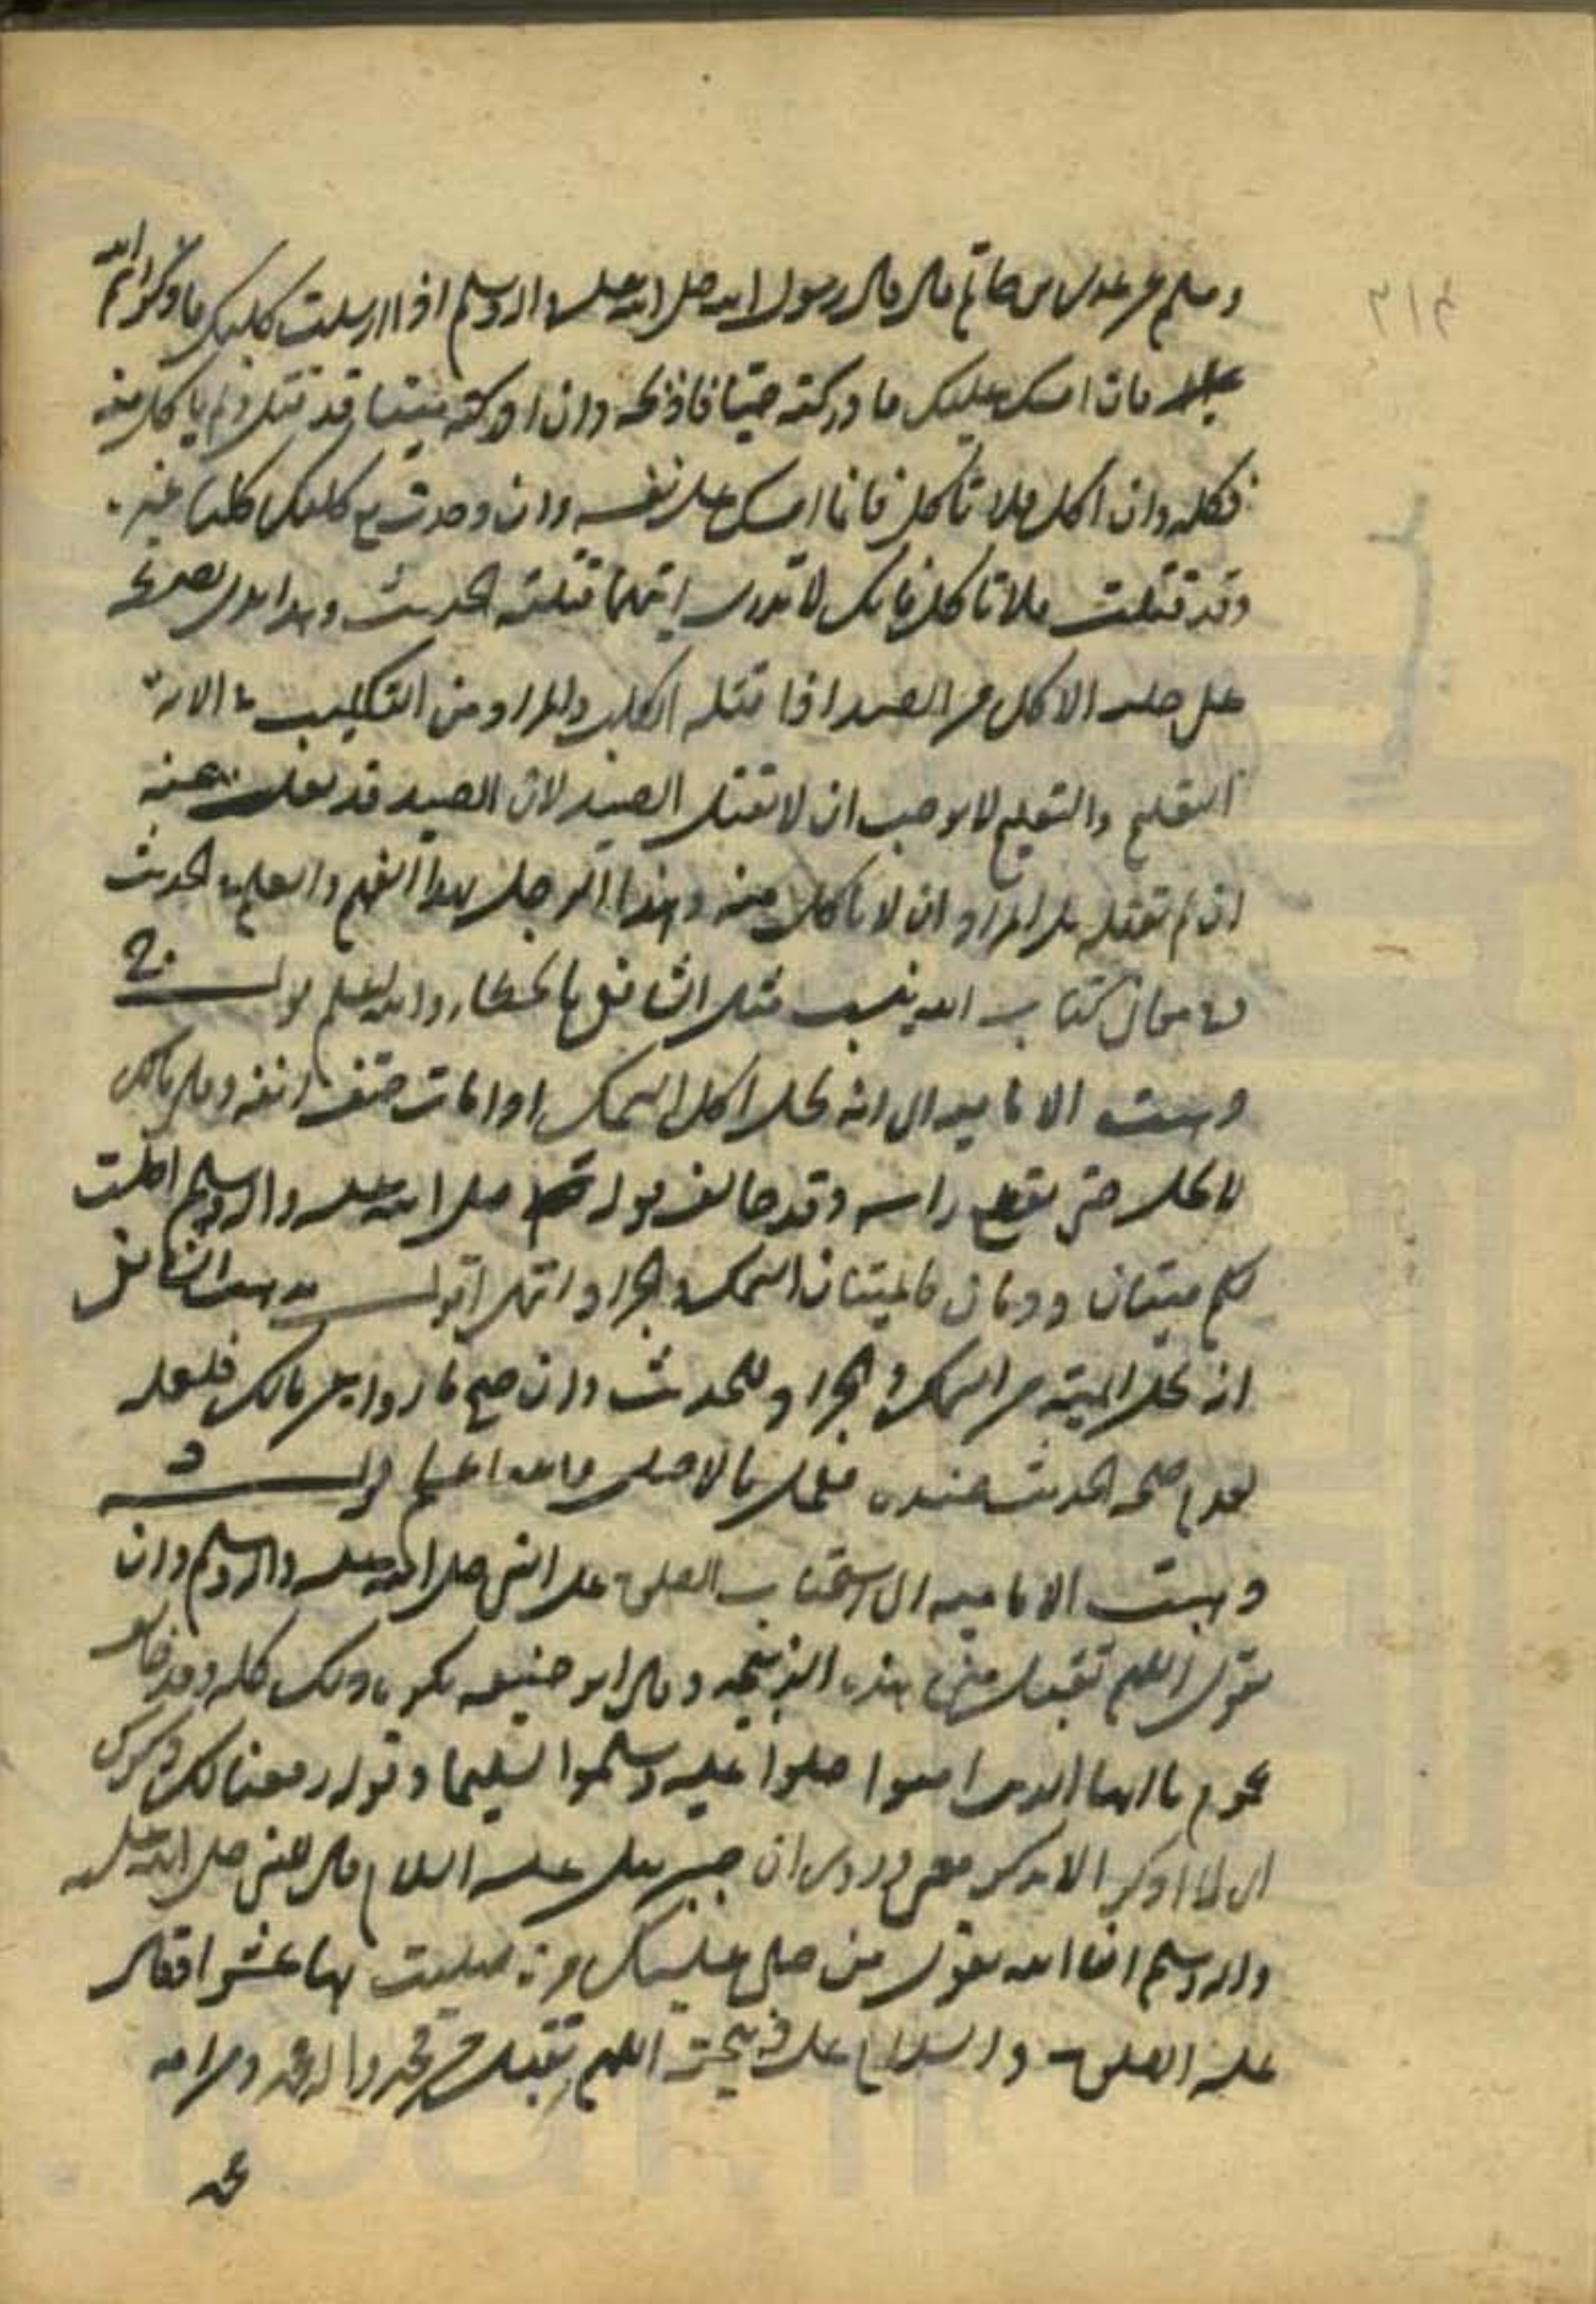 وسلم عن عدى بن حاتم قال قال رسول الله صلى الله عليه واله وسلم اذا ارسلت كلبك فاذكر اسم الله
عليه فان امسك عليك فادركته حيّا فاذبحه وان ادركته ميتا قد قتل ولم ياكل منه
فكله وان اكل فلا تاكل فانما امسك على نفسه وان وجدت مع كلبك كلبا غيره
وقد قتلت فلا تاكل فانك لا تدرى ايّهما قتلته الحديث وهذا يدل بصريحه
على حلية الاكل من الصيد اذا قتله الكلب والمراد من التكليب فى الاية
التعليم والتعليم لا يوجب ان لا تقتل الصيد لان الصيد قد
ان لم تقتله بل المراد ان لا ياكل منه وهذا الرجل بهذا الفهم والعلم بالحديث
ومعانى كتاب الله ينسب مثل الشافعى بالخطاء والله اعلم قوله ج
ذهبت الامامية الى انه يحل اكل السمك اذا مات حتف انفه وقال مالك
لا يحل حتى يقطع راسه وقد خالف قوله صلى الله عليه واله وسلم احلت
لكم ميتتان ودمان فالميتتان السمك والجراد انتهى اقول مذهب الشافعى
انه يحل الميتة من السمك والجراد للحديث وان صح ما رواه عن مالك فلعله
لعدم صحة الحديث عنده فيعمل بالاصل والله اعلم قوله د
ذهبت الامامية الى استحباب الصلوة على النبى صلى الله عليه واله وسلم وان
يقول اللهم تقبل منى هذه الذبيحة وقال ابو حنيفه يكره ذلك كله وقد خالف
عموم يا ايها الذين امنوا صلوا عليه وسلموا تسليما وقوله ورفعنا لك ذكرك
اى لا اذكر الا وتذكر معى وروى ان جبرئيل عليه السلام قال للنبى صلى الله عليه
واله وسلم ان الله يقول من صلى عليك مرة صليت بها عشرا وقال
عليه الصلوة والسلام على ذبيحته اللهم تقبل من محمد وال محمد ومن امة
محمد